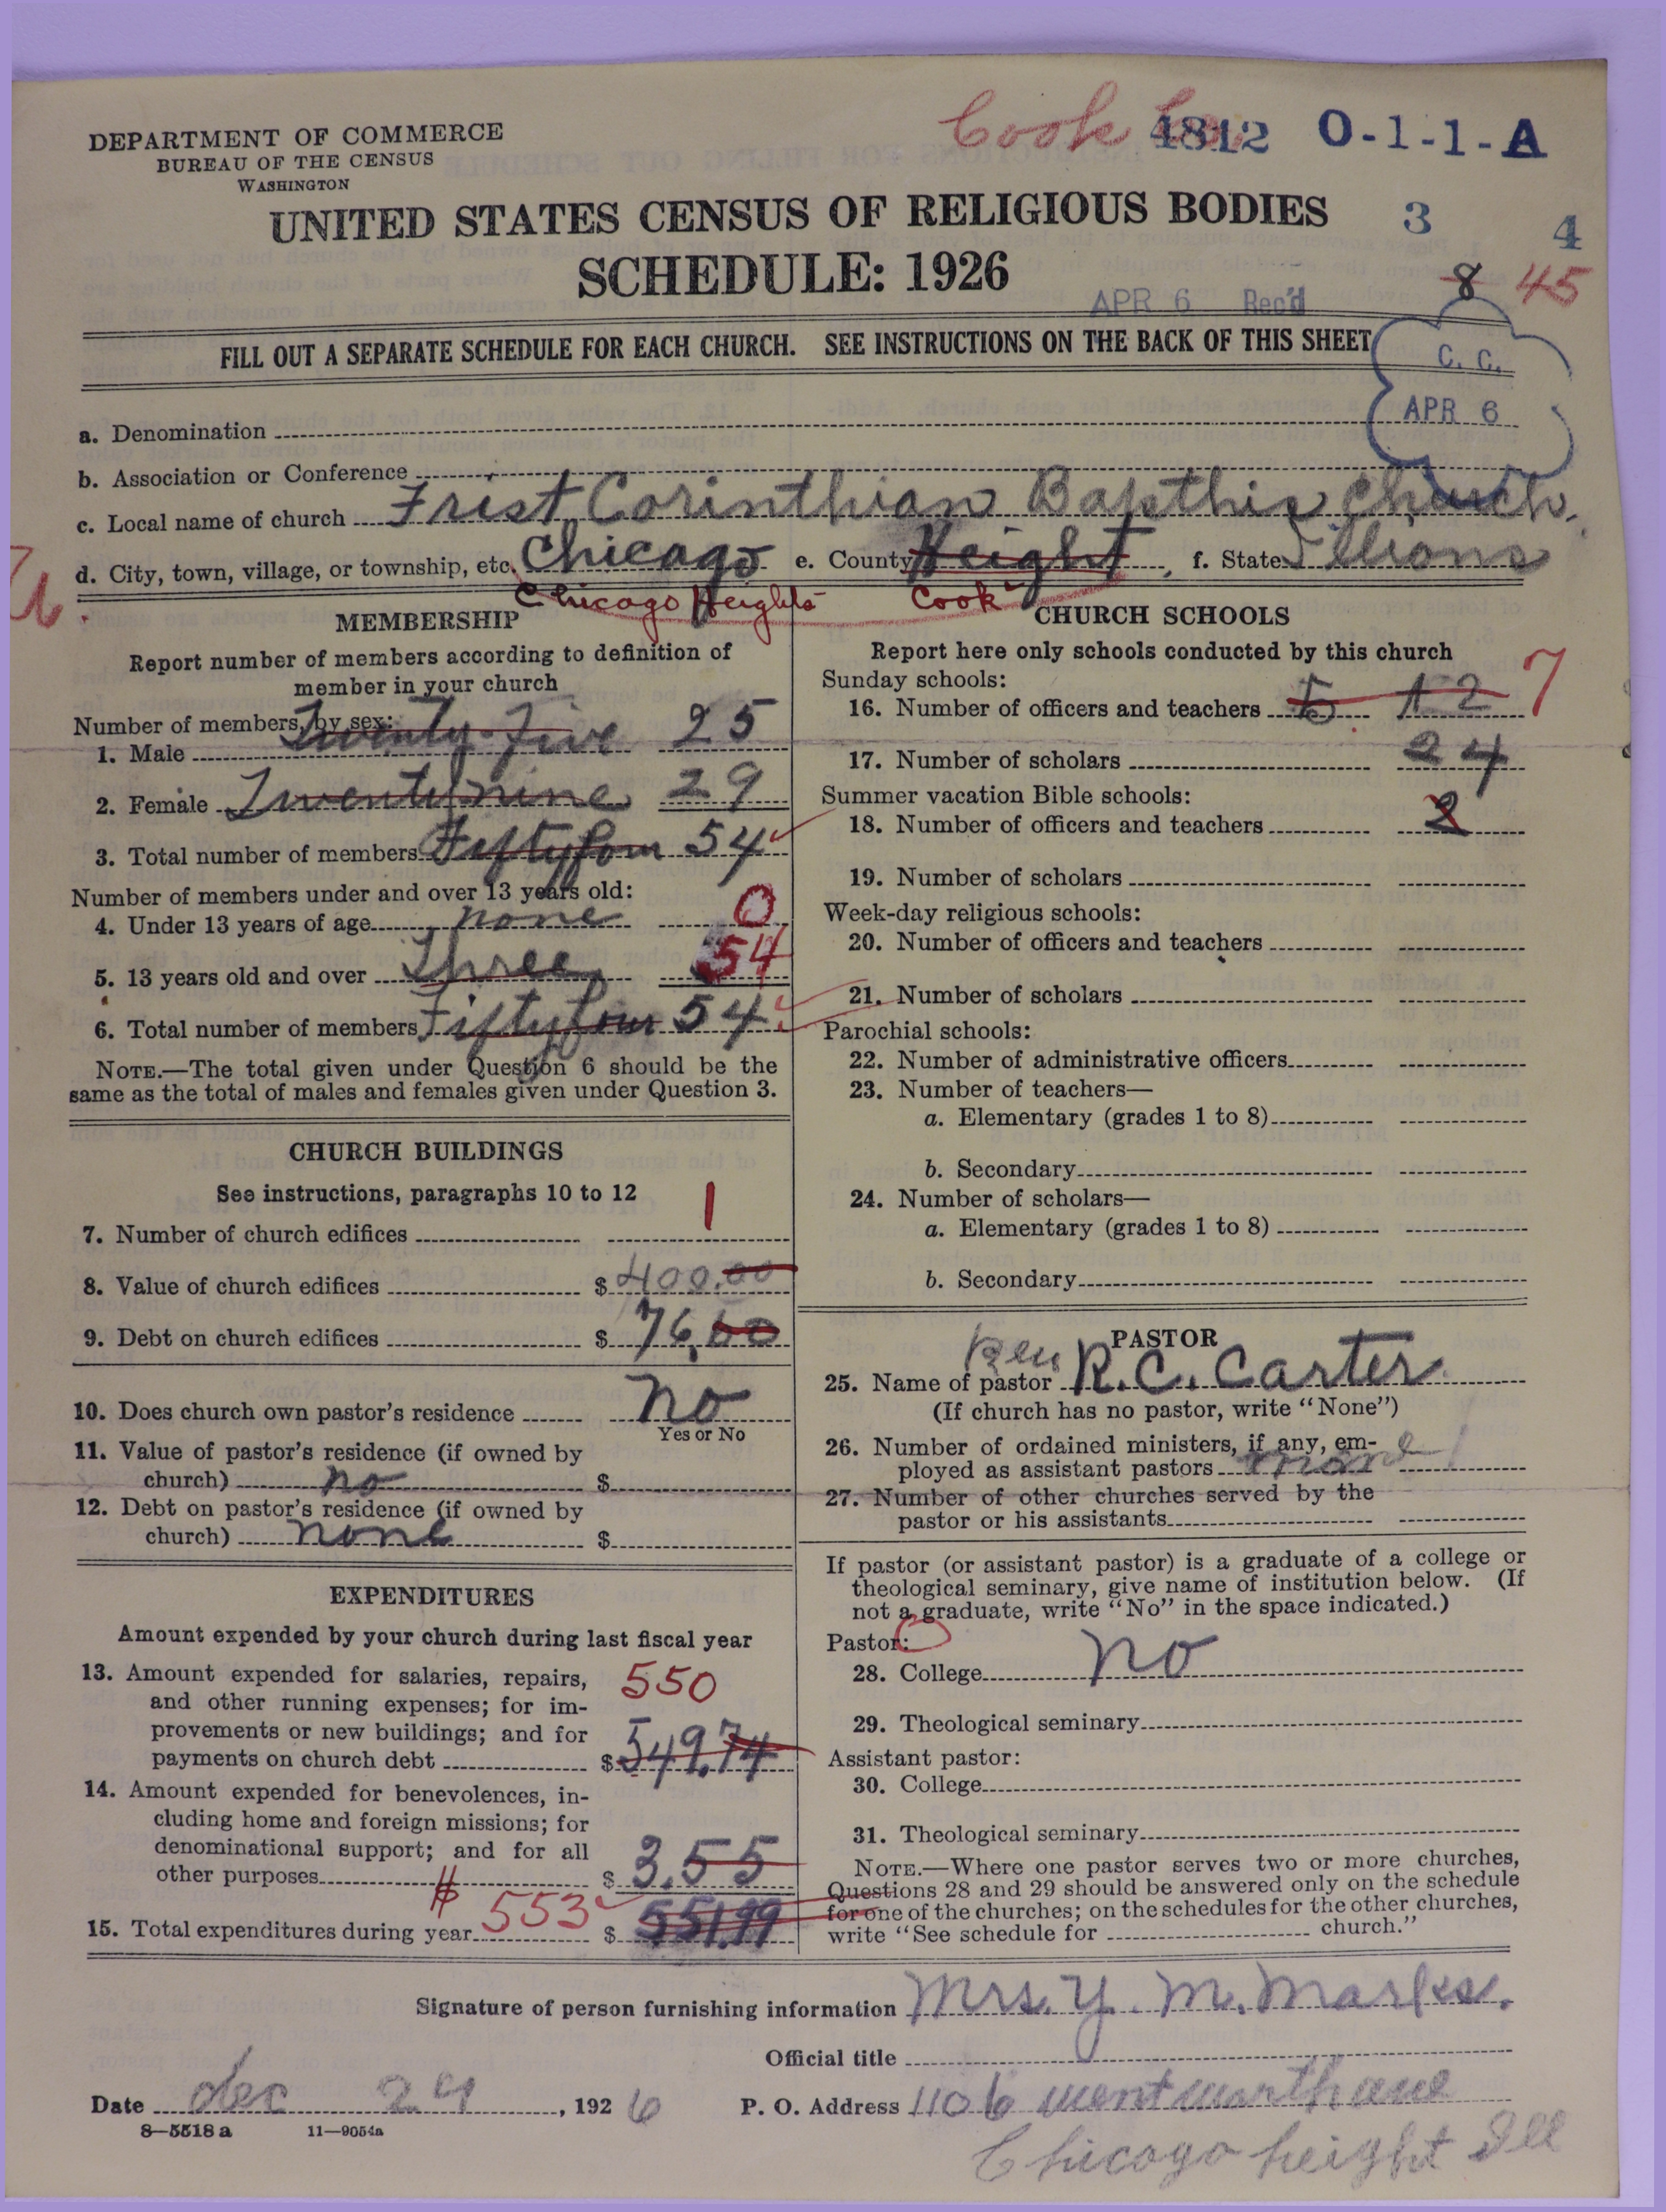 DEPARTMENT OF COMMERCE
BUREAU OF THE CENSUS
WASHINGTON
Cook Co. 4812 O-1-1-A
UNITED STATES CENSUS OF RELIGIOUS BODIES
3 4
SCHEDULE: 1926
8 45
APR 6 Rec'd
FILL OUT A SEPARATE SCHEDULE FOR EACH CHURCH. SEE INSTRUCTIONS ON THE BACK OF THIS SHEET
C. C.
APR 6
a. Denomination
b. Association or Conference
c. Local name of church Frist Corinthian Bapthis Church.
d. City, town, village, or township, etc. Chicago e. County Height, f. State Illions
Chicago Heights Cook
MEMBERSHIP
Report number of members according to definition of
member in your church
Number of members, by sex:
1. Male Twenty-Five 25
2. Female Twentynine 29
3. Total number of members Fiftyfour 54
Number of members under and over 13 years old:
4. Under 13 years of age none 0
5. 13 years old and over Three 54
6. Total number of members Fiftyfour 54
NOTE.—The total given under Question 6 should be the
same as the total of males and females given under Question 3.
CHURCH BUILDINGS
See instructions, paragraphs 10 to 12
7. Number of church edifices 1
8. Value of church edifices $ 400.00
9. Debt on church edifices $ 76.00
10. Does church own pastor's residence no
Yes or No
11. Value of pastor's residence (if owned by
church) no $
12. Debt on pastor's residence (if owned by
church) none $
EXPENDITURES
Amount expended by your church during last fiscal year
13. Amount expended for salaries, repairs,
and other running expenses; for im-
provements or new buildings; and for
payments on church debt $ 549.74
550
14. Amount expended for benevolences, in-
cluding home and foreign missions; for
denominational support; and for all
other purposes $ 3.55
15. Total expenditures during year $ 553 $ 551.99
CHURCH SCHOOLS
Report here only schools conducted by this church
Sunday schools:
16. Number of officers and teachers 5 12 7
17. Number of scholars 24
Summer vacation Bible schools:
18. Number of officers and teachers 2
19. Number of scholars
Week-day religious schools:
20. Number of officers and teachers
21. Number of scholars
Parochial schools:
22. Number of administrative officers
23. Number of teachers—
a. Elementary (grades 1 to 8)
b. Secondary
24. Number of scholars—
a. Elementary (grades 1 to 8)
b. Secondary
PASTOR
25. Name of pastor Rev R. C. Carter
(If church has no pastor, write "None")
26. Number of ordained ministers, if any, em-
ployed as assistant pastors
27. Number of other churches served by the
pastor or his assistants
If pastor (or assistant pastor) is a graduate of a college or
theological seminary, give name of institution below. (If
not a graduate, write "No" in the space indicated.)
Pastor:
28. College no
29. Theological seminary
Assistant pastor:
30. College
31. Theological seminary
NOTE.—Where one pastor serves two or more churches,
Questions 28 and 29 should be answered only on the schedule
for one of the churches; on the schedules for the other churches,
write "See schedule for church."
Signature of person furnishing information Mrs. Y. M. Marks.
Official title
Date dec 29, 1926 P. O. Address 1106 wentwurth ave
8—5518 a 11—9054a
Chicago height Ill